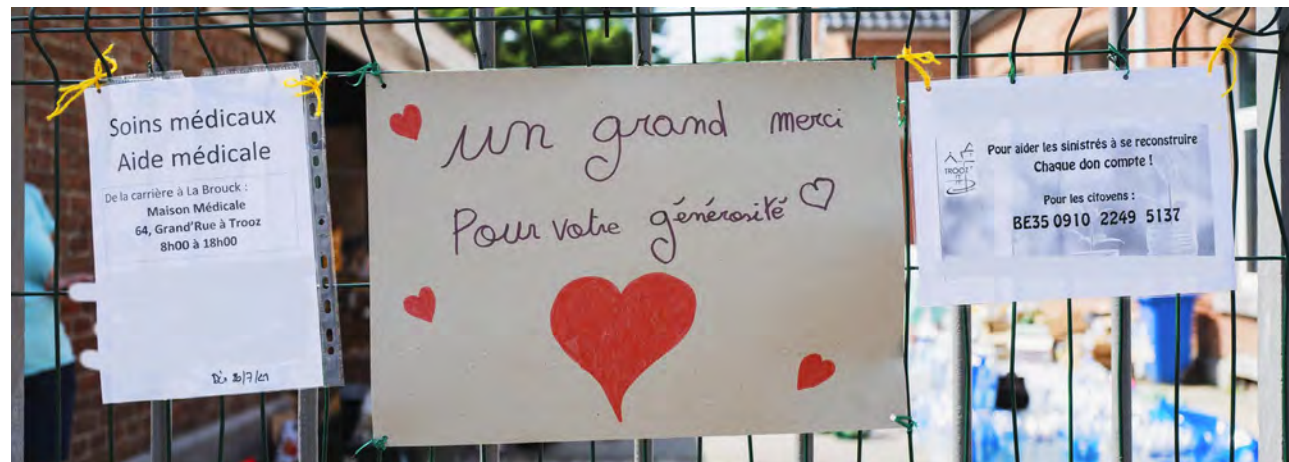 Soins médicaux
Aide médicale
De la carrière à La Brouck :
Maison Médicale
64, Grand'Rue à Trooz
8h00 à 18h00
un grand merci
Pour votre générosité
TROOZ
Pour aider les sinistrés à se reconstruire
Chaque don compte !
Pour les citoyens :
BE35 0910 2249 5137